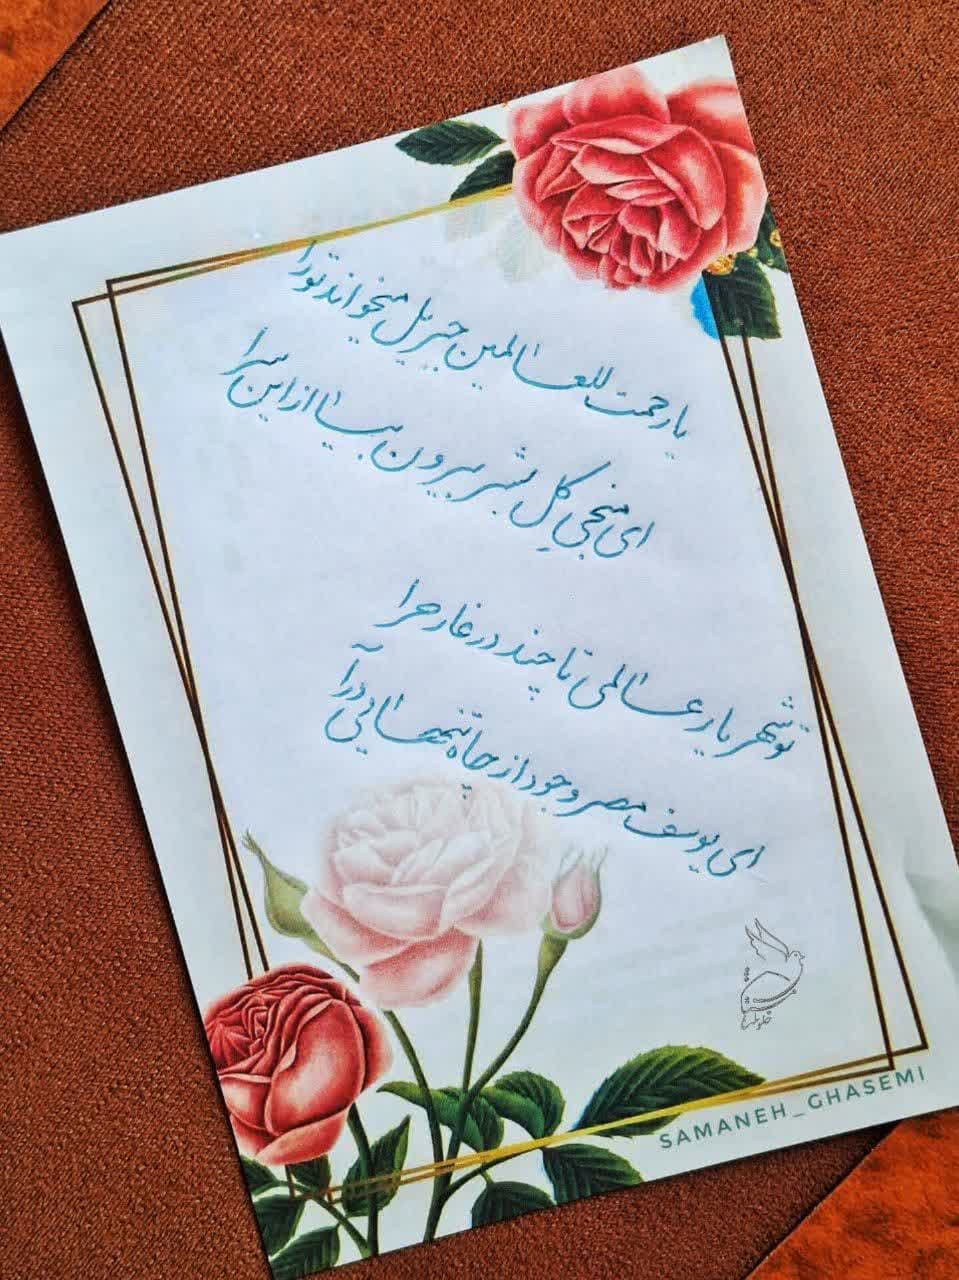 یا رحمت للعالمین جبریل میخواند تو را
ای منجی کل بشر بیرون بیا از این سرا
تو شهریار عالمی تا چند در غار حرا
ای یوسف مصر وجود از چاه تنهائی درآ
SAMANEH_GHASEMI